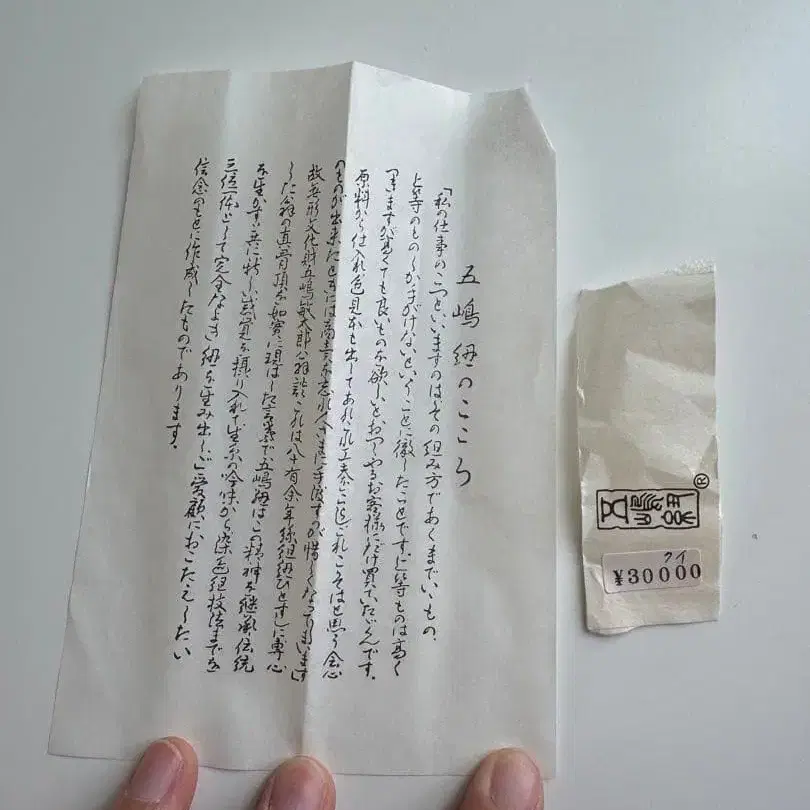 五嶋紐のこころ
「私の仕事のこつといいますのはその組み方であくまでいいもの、
上等のものしか手がけないということに徹したことです。上等ものは高く
つきますが高くても良いものを欲しいとおっしゃるお客様にだけ買っていただくんです。
原料から仕入れ色見本も出してあれこれ工夫
これこそはと思う会心
のものが出来たときには商売を忘れ人さまに手渡すのが惜しくなってしまいます」
故無形文化財五嶋敏太郎公翁談 これは八十有余年絲組紐ひとすじに専心
した翁の真骨頂を如実に現はした言葉で五嶋紐はこの精神を継承伝統
を生かす共に新しい感覚を採り入れ生糸の吟味から染色組技法までを
三位一体として完全なよき紐を生み出し ご愛顧におこたえしたい
信念のもとに作成したものであります。
五嶋紐
®
クイ
¥30000